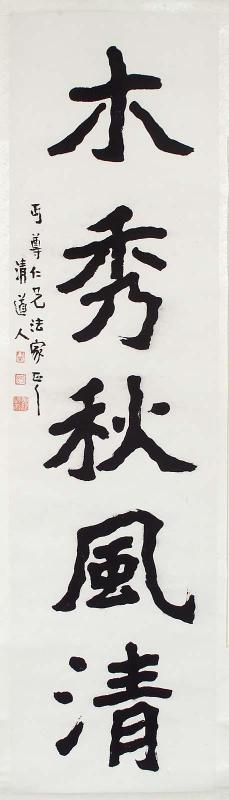 木秀秋風清
丐尊仁兄法家正
清道人